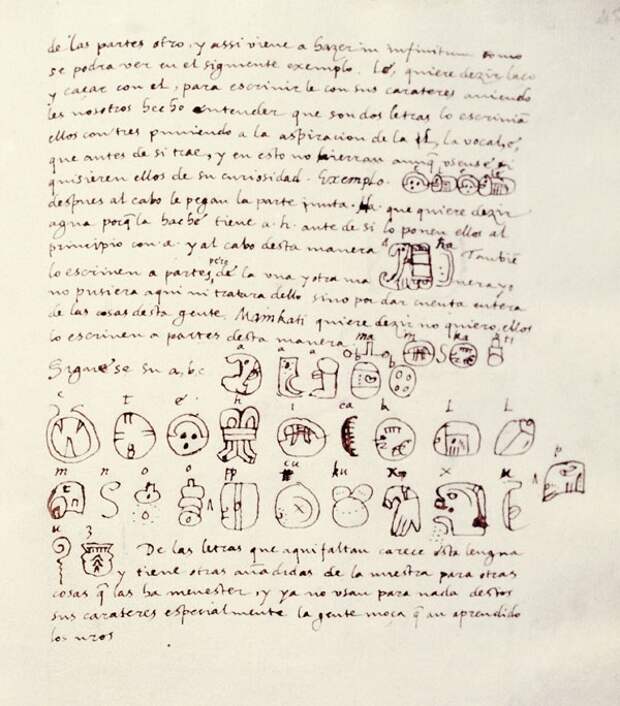 de las partes otro, y assi viene a hazer in infinitum como
se podra ver en el siguiente exemplo. Lé, quiere dezir laço
y caçar con el, para escrivirle con sus carateres aviendo
les nosotros hecho entender que son dos letras lo escrivian
ellos con tres puniendo a la aspiracion de la la vocal, é,
que antes de si trae, y en esto no hierran aunq̃ si
quisieren ellos de su curiosidad. Exemplo.
despues al cabo le pegan la parte junta. Ha que quiere dezir
agua porq̃ la haché tiene a. h. ante de si lo ponen ellos al
principio con a. y al cabo desta manera a ha Tambiẽ
lo escriven a partes, pero de la una y otra ma nera yo
no pusiera aqui ni tratara dello sino por dar cuenta entera
de las cosas desta gente. Mainkati quiere dezir no quiero, ellos
lo escriven a partes desta manera ma ka ti
Siguese su a, b, c a a a b b
c t e h i ca k l l
m n o o pp cu ku x x u p
u z
De las letras que aqui faltan carece esta lengua
y tiene otras añadidas de la nuestra para otras
cosas q̃ las ha menester, y ya no usan para nada destos
sus carateres especialmente la gente moça q̃ an aprendido
los nros